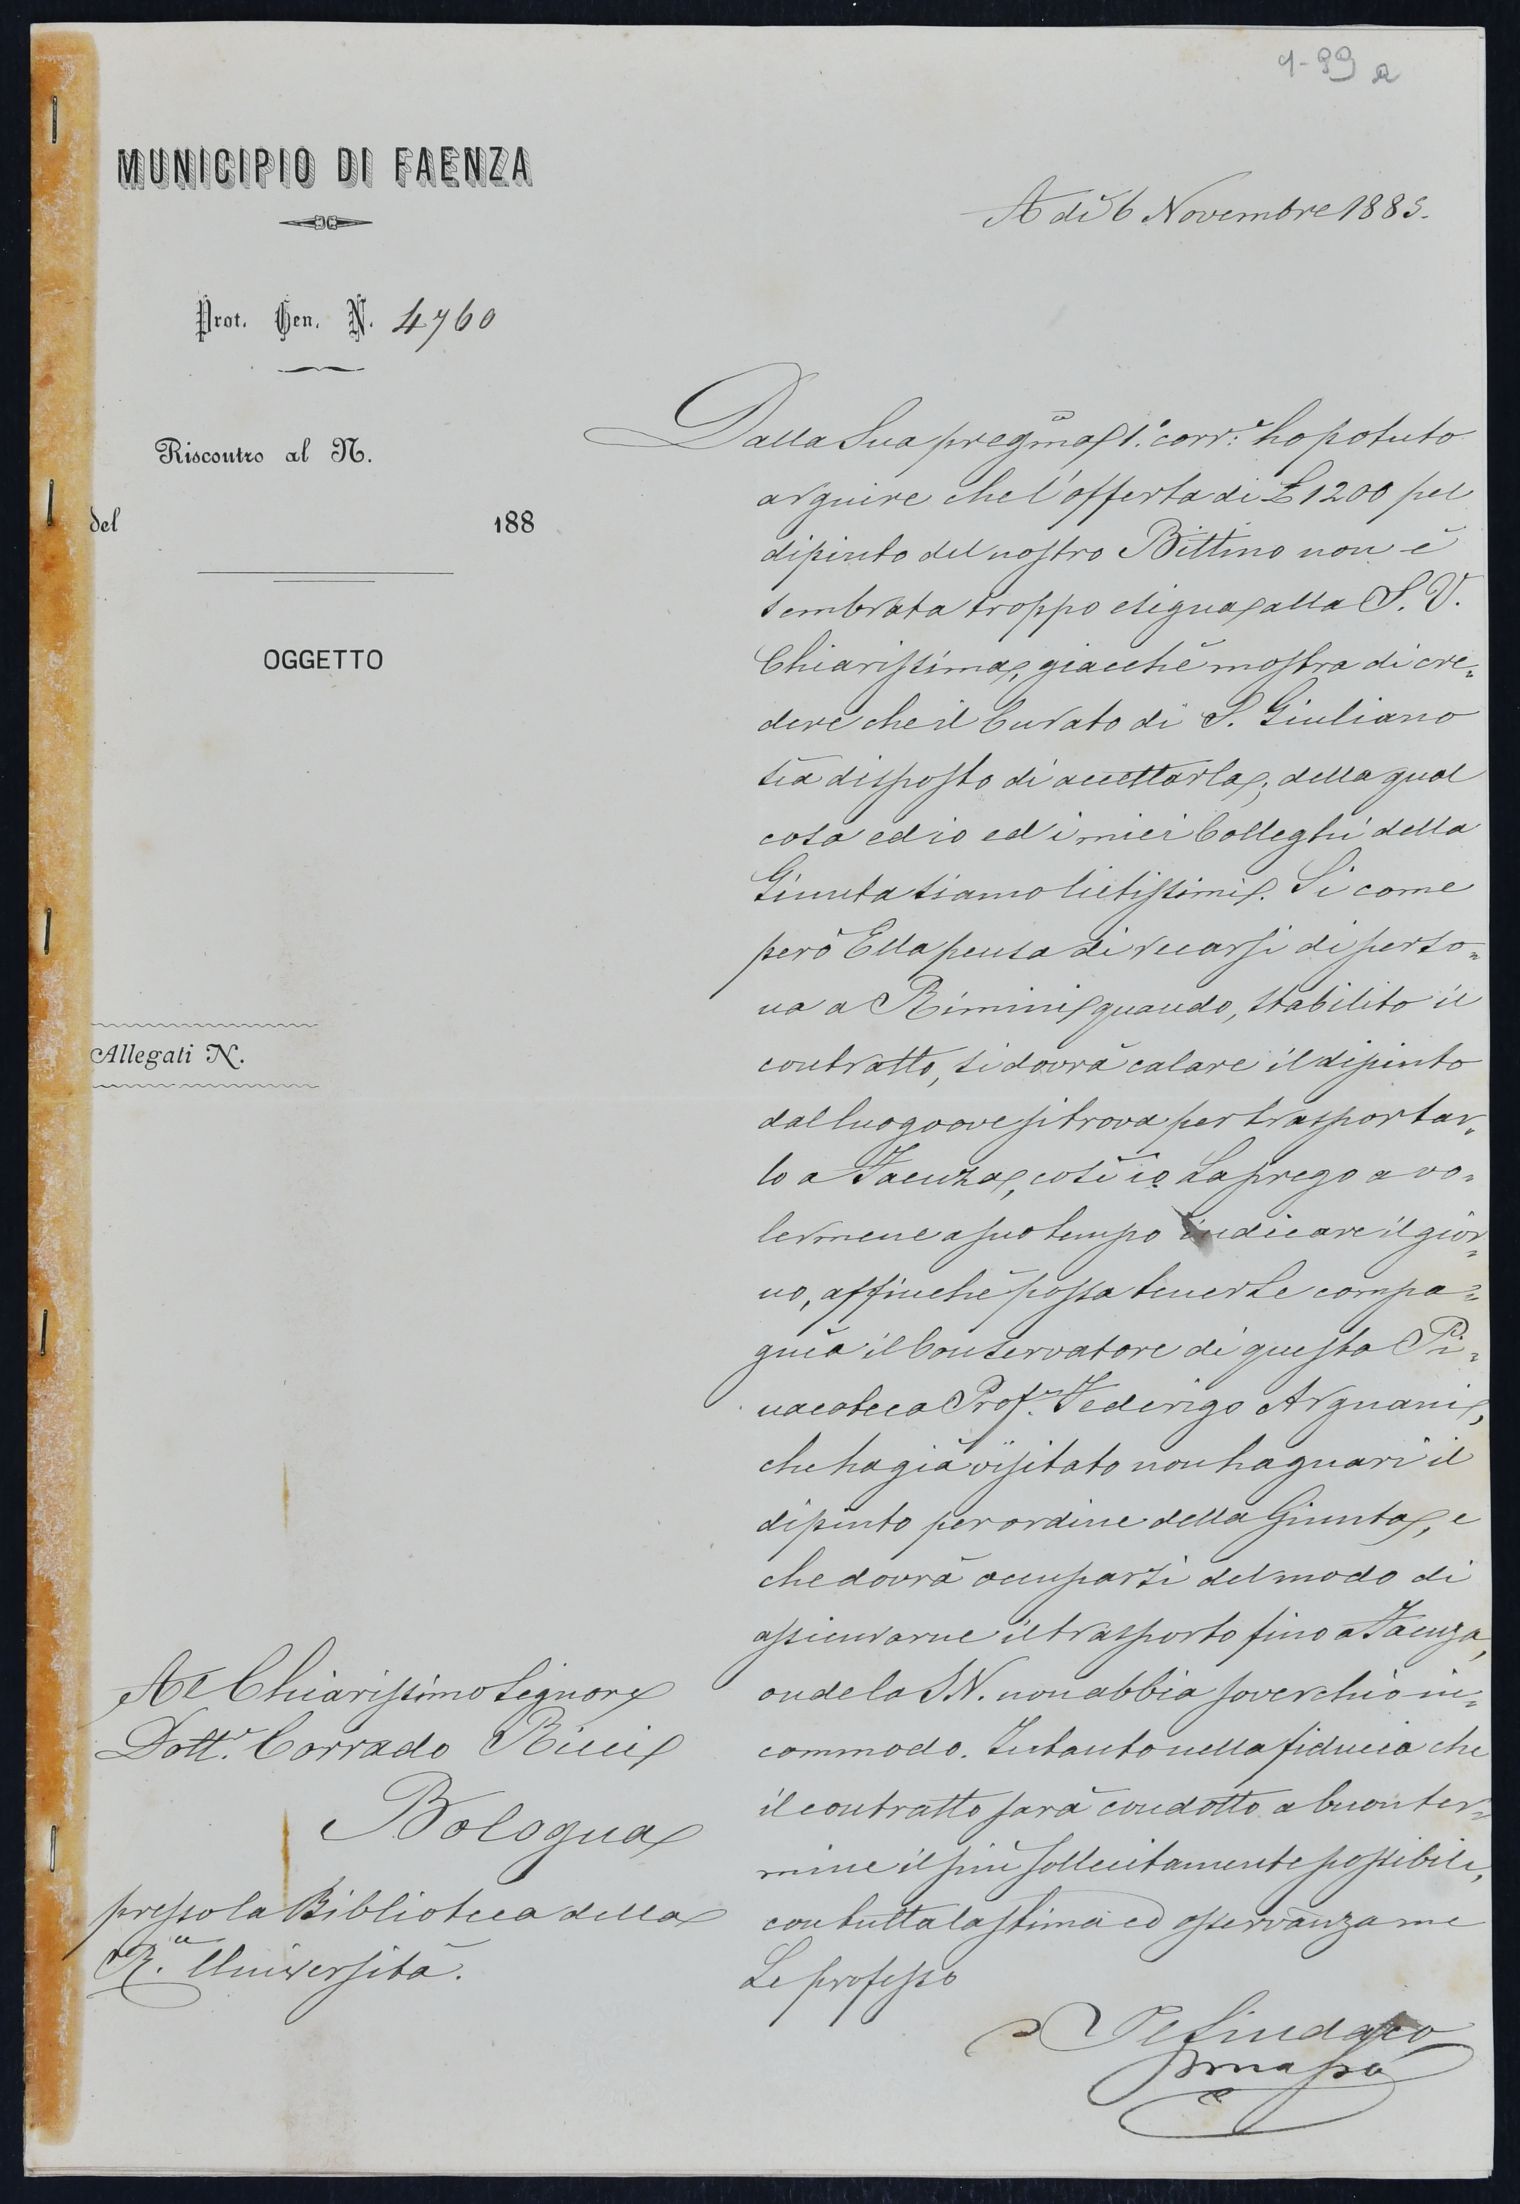 MUNICIPIO DI FAENZA
A dì 6 Novembre 1885.
Prot. Gen. N. 4760
Riscontro al N.
del 188
OGGETTO
Allegati N.
Dalla Sua pregma 1.º corr.e ho potuto
arguire che l'offerta di £ 1200 pel
dipinto del nostro Bittino non è
sembrata troppo esigua alla S. V.
Chiarissima, giacchè mostra di cre=
dere che il Curato di S. Giuliano
sia disposto di accettarla; della qual
cosa ed io ed i miei Colleghi della
Giunta siamo lietissimi. Si come
però Ella pensa di recarsi di perso=
na a Rimini quando, stabilito il
contratto, si dovrà calare il dipinto
dal luogo ove si trova per trasportar=
lo a Faenza, così io La prego a vo=
lermene a suo tempo indicare il gior=
no, affinchè possa tenerLe compa=
gnia il Conservatore di questa Pi=
nacoteca Prof.r Federigo Argnani,
che ha già visitato non ha guari il
dipinto per ordine della Giunta, e
che dovrà occuparsi del modo di
assicurarne il trasporto fino a Faenza,
onde la S.V. non abbia soverchio in=
commodo. Intanto nella fiducia che
il contratto sarà condotto a buon ter=
mine il più sollecitamente possibile,
con tutta la stima ed osservanza me
Le professo
Il Sindaco
Al Chiarissimo Signore
Dott.r Corrado Ricci
Bologna
presso la Biblioteca della
R.a Università.